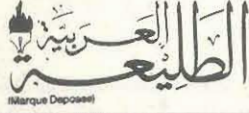 الطليعة العربية
(Marque Deposée)